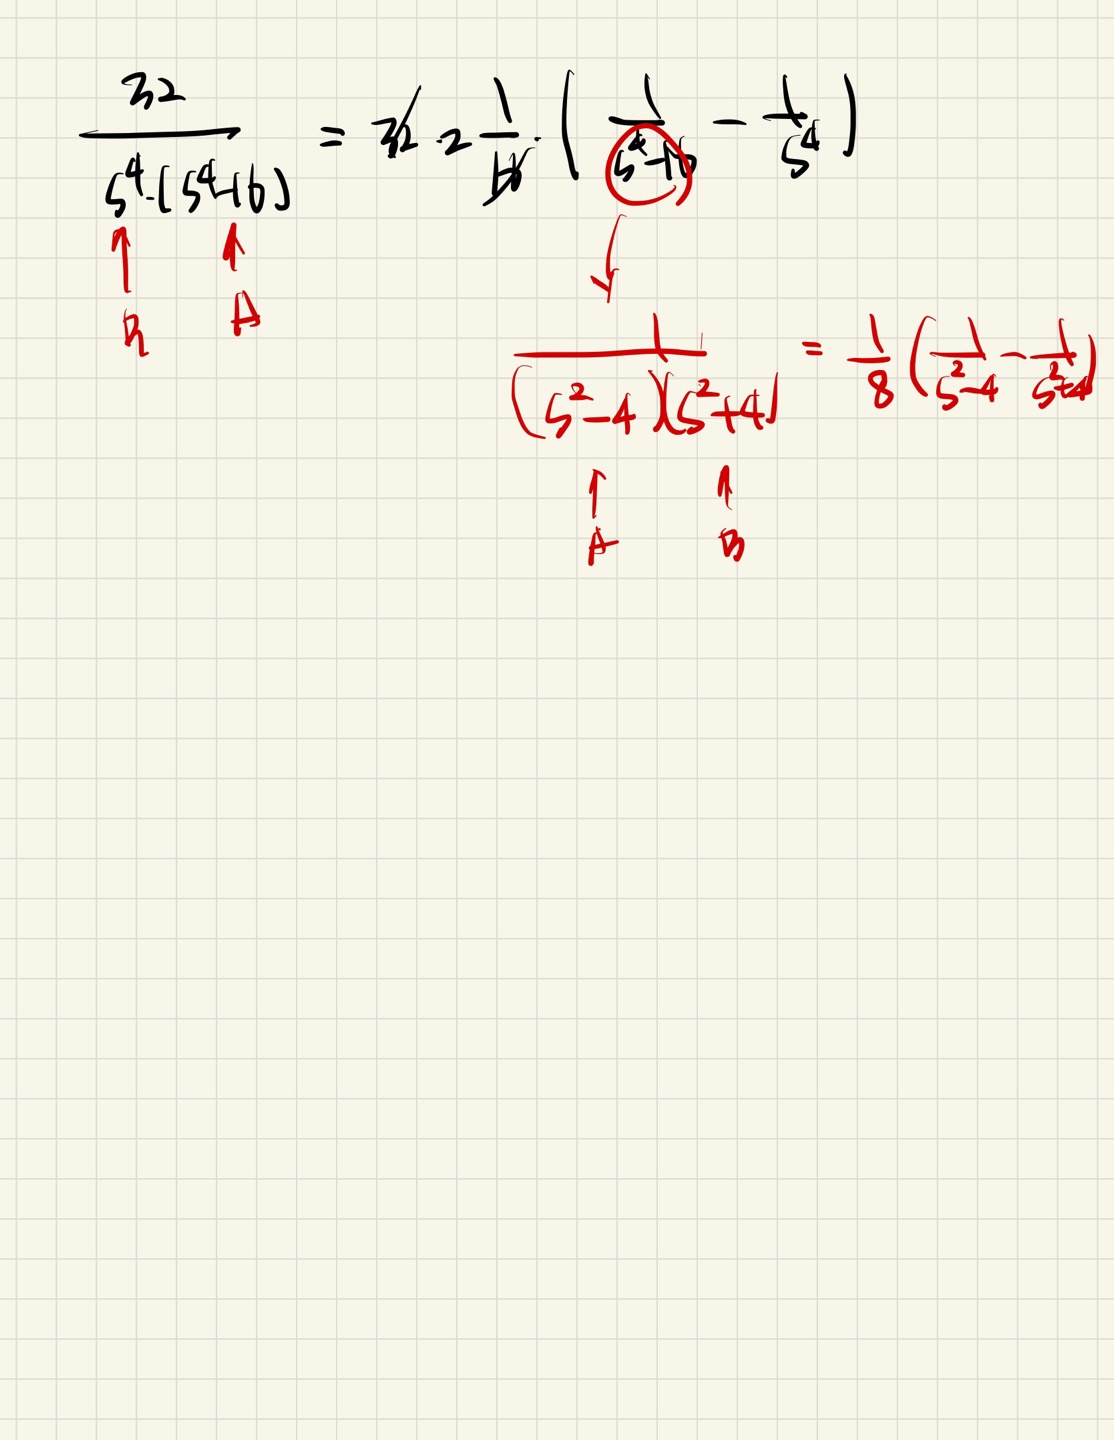 32 / s⁴·(s⁴-16) = 32 · 2 1/16 · ( 1/(s⁴-16) - 1/s⁴ )
B A
1 / (s²-4)(s²+4) = 1/8 ( 1/(s²-4) - 1/(s²+4) )
A B